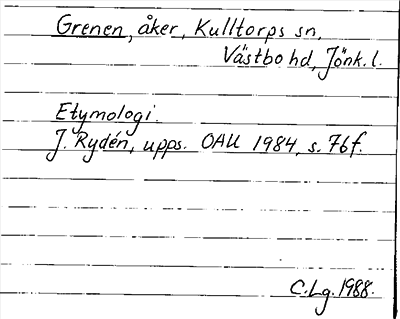 Grenen, åker, Kulltorps sn,
Västbo hd, Jönk. l.
Etymologi.
J. Rydén, upps. OAU 1984, s. 76f.
C.Lg. 1988.